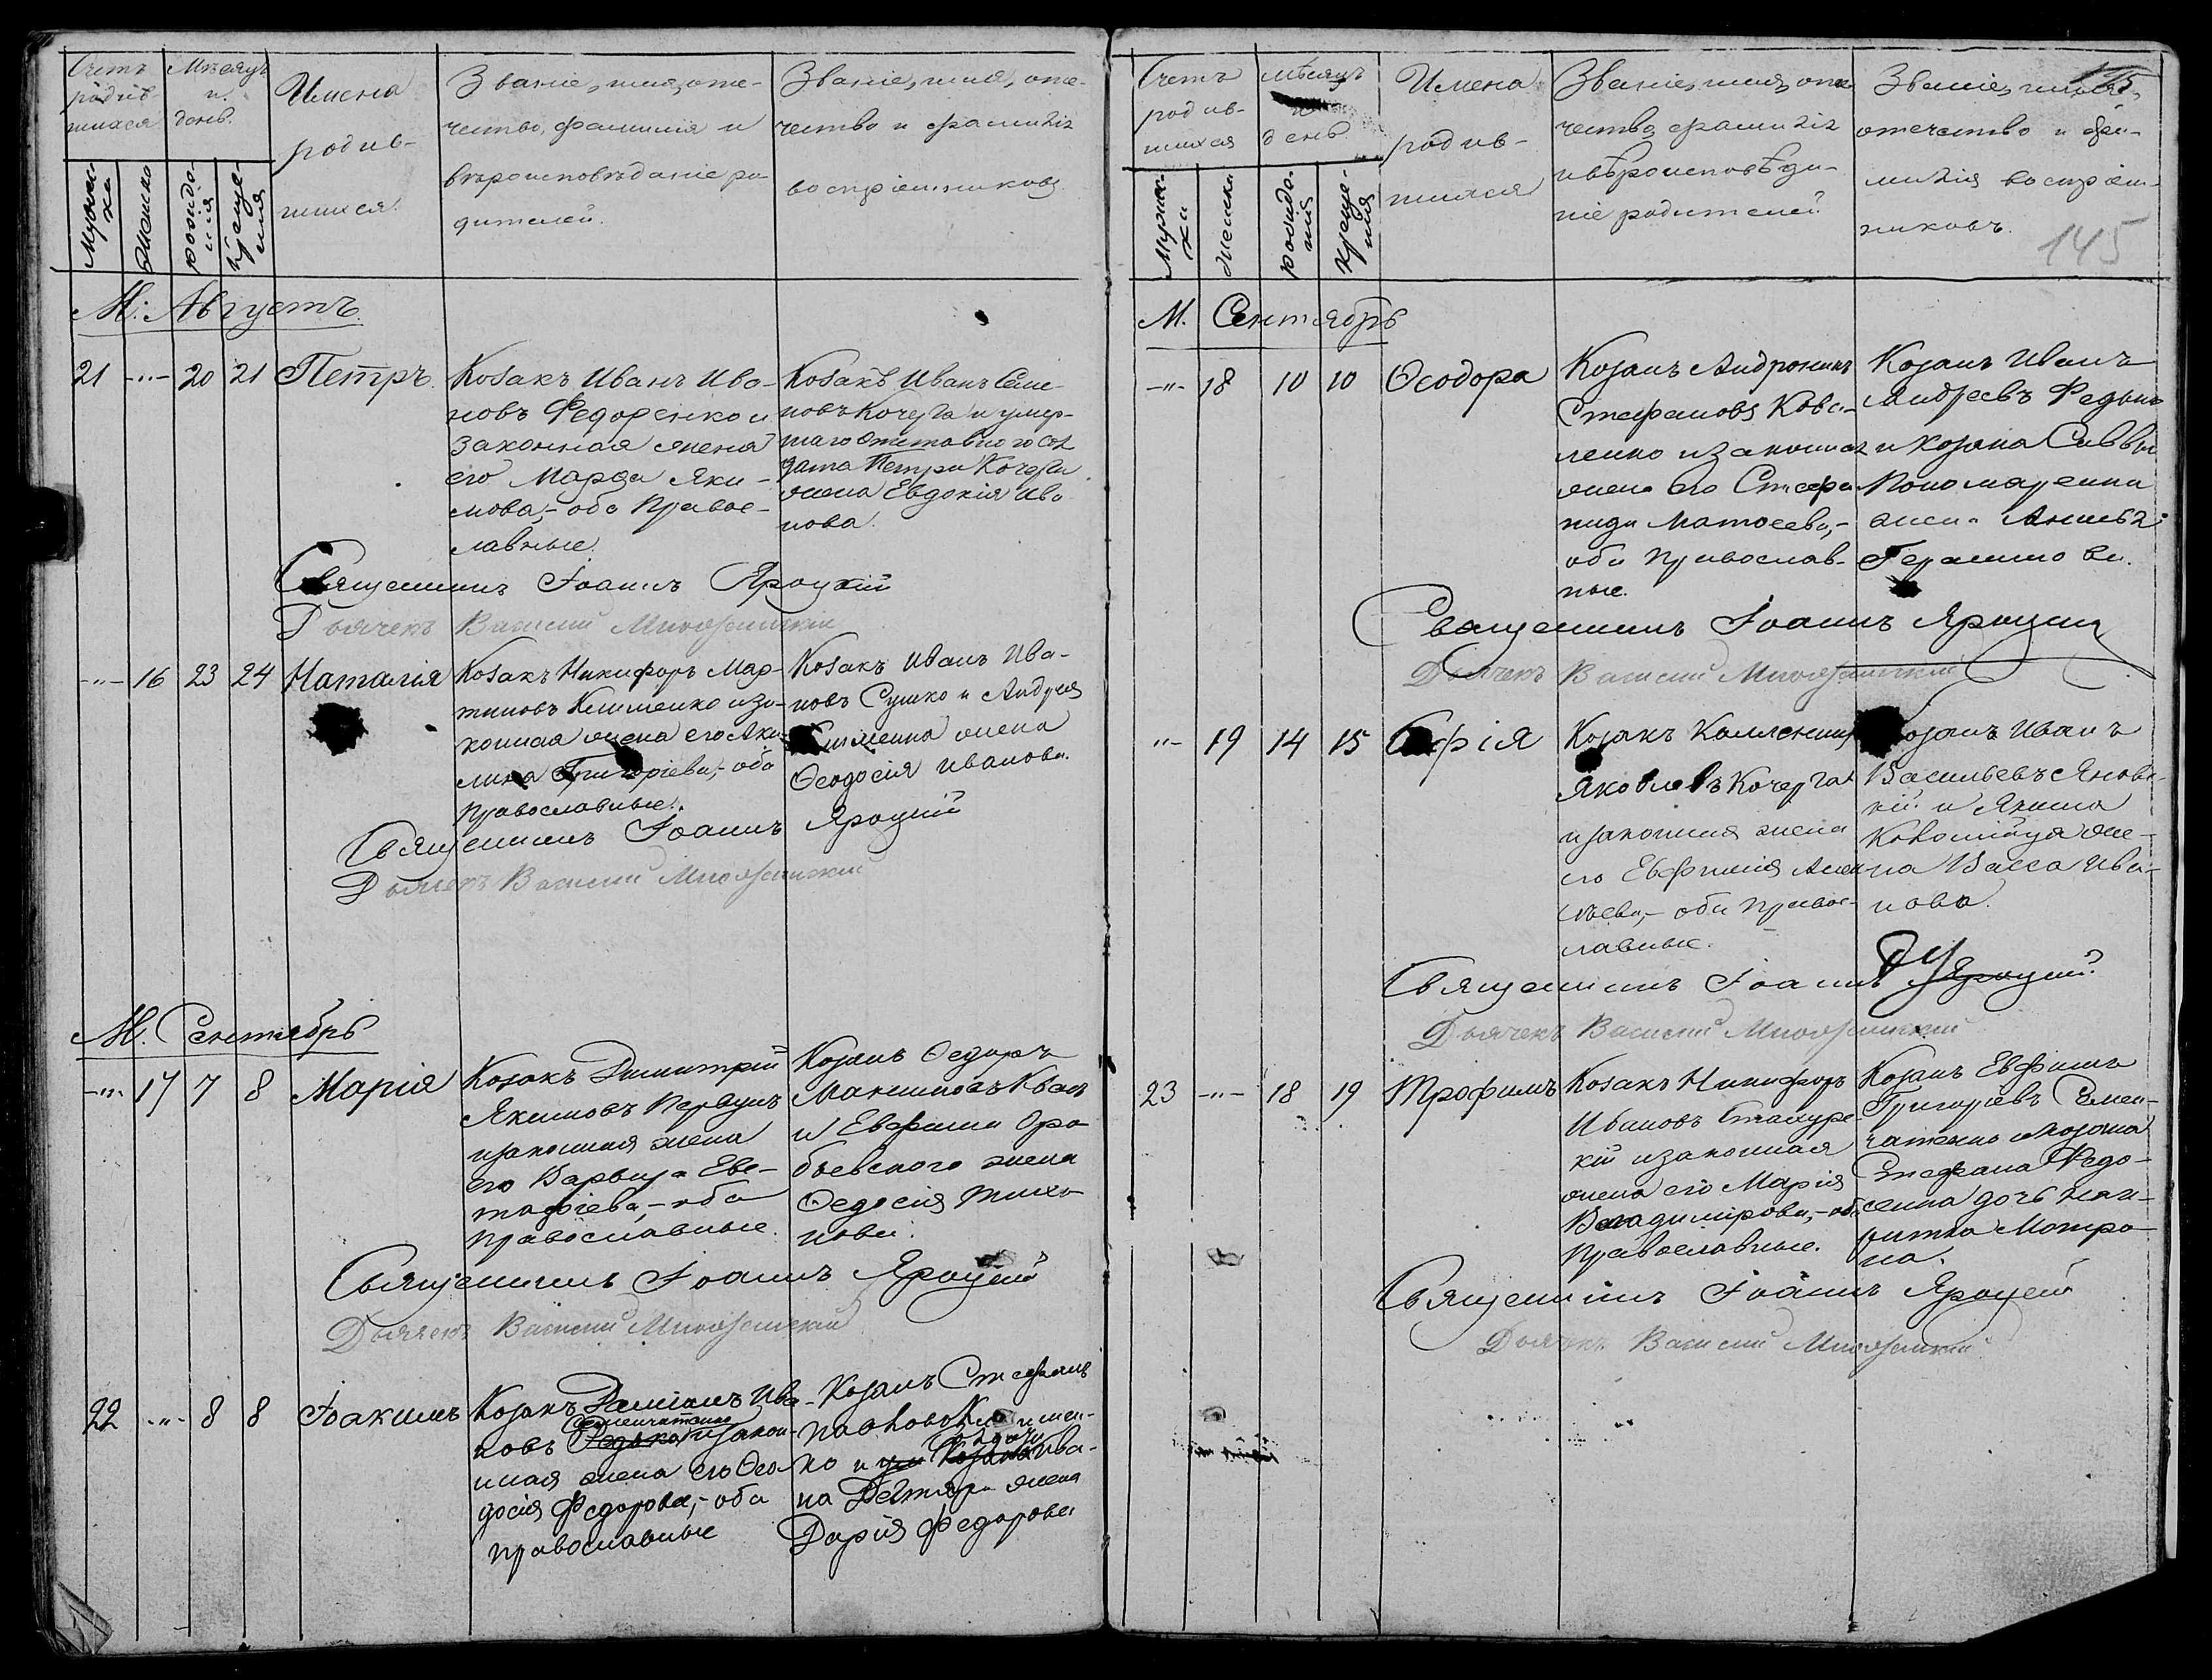 Счетъ родив-
шихся
Мѣсяцъ
и
день.
Имена
родив-
шихся.
Званіе, имя, оте-
чество, фамилія и
вѣроисповѣданіе ро-
дителей.
Званіе, имя, оте-
чество и фамилія
воспріемниковъ
Мужес-
ка
Женска
рожде-
нія
креще-
нія
М: Августъ.
21 -"- 20 21 Петръ.
Козакъ Иванъ Ива-
новъ Федоренко и
законная жена
его Марѳа Яки-
мова,- оба Правос-
лавные.
Козакъ Иванъ Семе-
новъ Кочерга и умер-
шаго отставного сол
дата Петра Кочерги
жена Евдокія Ива
нова.
Священникъ Іоаннъ Яроцкій
Дьячекъ Василий
-"- 16 23 24 Наталія
Козакъ Никифоръ Мар-
тиновъ Клименко и за-
конная жена его Аки-
лина Григоріева,- оба
Православные.
Козакъ Иванъ Ива-
новъ Сушко и Андрея
Клименка жена
Ѳеодосія Иванова.
Священникъ Іоаннъ Яроцкій
Дьячекъ Василий
М. Сентябрь
-"- 17 7 8 Марія
Козакъ Димитрій
Якимовъ
изаконная жена
его Варвара Евс-
тафіева,- оба
православные.
Козакъ Ѳедоръ
Максимовъ Квас
и Евфима Ора
бьевского жена
Ѳедосія Тихо
нова.
Священникъ Іоаннъ Яроцкій
Дьячекъ Василий
22 -"- 8 8 Іоакимъ
Козакъ Даміанъ Ива-
Семенчатенко
новъ Федько изакон-
нная жена его Ѳео-
досія Федорова,- оба
православные
Козакъ Стефанъ
Павловъ Климен-
ко и Козака Ива-
на Дегтяра жена
Дарія Федорова
Счетъ
родив-
шихся
мѣсяцъ
и
день
Имена
родив-
шихся
Званіе, имя, оте
чество, фамилія
и вѣроисповѣда-
ніе родителей
Званіе, имя,
отечество и фа-
милія воспріем-
никовъ.
145
145
Мужес-
ки
Женски
рожде-
нія
креще-
нія
М. Сентябрь
-"- 18 10 10 Ѳеодора
Козакъ Андроникъ
Стефановъ Кова-
ленко и законная
жена его Стефа
нида Матѳеева,-
оба православ-
ные.
Козакъ Иванъ
Андреевъ Федько
и козака Саввы
Пономаренка
жена Анисія
Герасимова.
Священникъ Іоаннъ Яроцкій
Дьячекъ Василий
"- 19 14 15 Софія
Козакъ Каллиникъ
Яковлевъ Кочерга
и законная жена
его Евфимія Алек
сѣева,- оба правос-
лавные.
Козакъ Иванъ
Васильевъ Яновс-
кій и Якима
Коломійца же-
на Васса Ива-
нова.
Священникъ Іоаннъ Яроцкій
Дьячекъ Василий
23 -"- 18 19 Трофимъ
Козакъ Никифоръ
Ивановъ
кій изаконная
жена его Марія
Владимірова,- оба
Православные.
Козакъ Евфимъ
Григоріевъ Семен-
чатенко и козака
Стефана Федо-
сенка дочь
Матро
на.
Священникъ Іоаннъ Яроцкій
Дьячекъ Василий